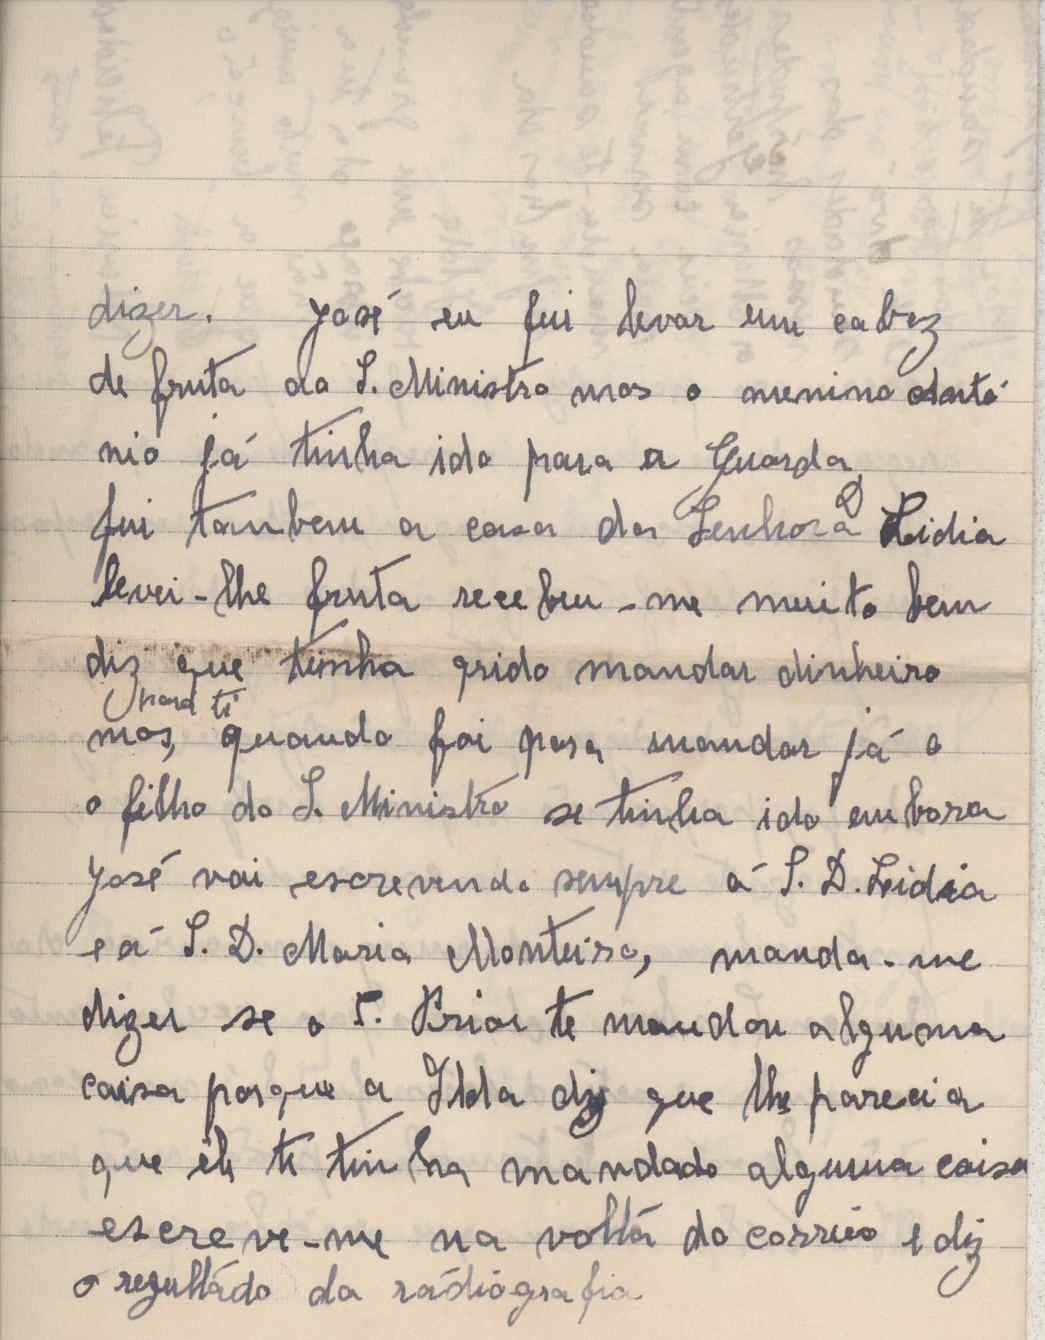 dizer. José eu fui levar um cabaz
de fruta ao S. Ministro mas o menino Antó
nio já tinha ido para a Guarda
fui tanbem a casa da Senhora D Lidia
levei-lhe fruta recebeu-me muito bem
diz que tinha qrido mandar dinheiro
para ti
mas, quando foi para mandar já o
o filho do S. Ministro se tinha ido embora
José vai escrevendo sempre á S. D. Lidia
e á S. D. Maria Monteiro, manda-me
dizer se o S. Prior te mandou alguma
caisa porque a Ilda diz que lhe parecia
que ele te tinha mandado alguma caisa
escreve-me na voltá do correio e diz
o regultádo da rádiografia